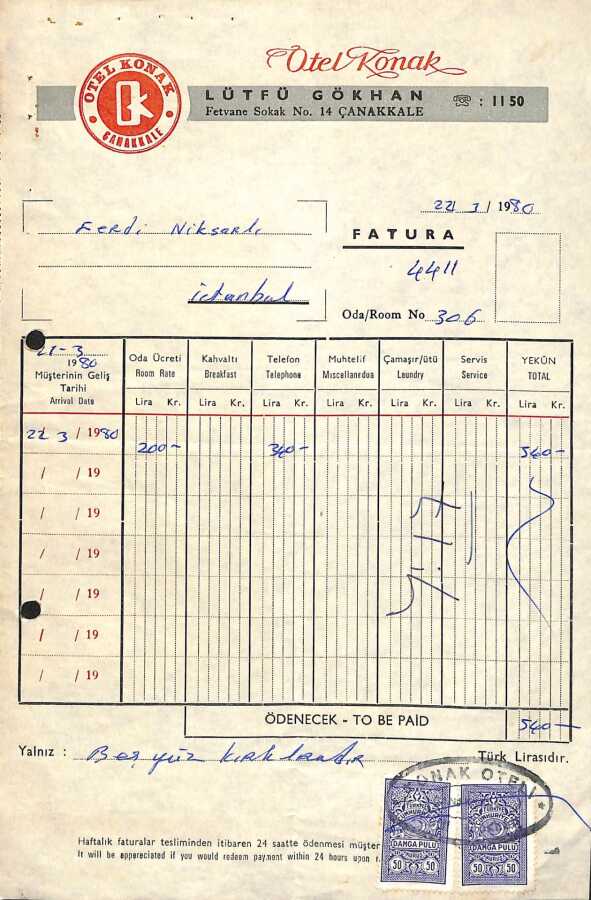 OTEL KONAK
ÇANAKKALE
Otel Konak
LÜTFÜ GÖKHAN
: 11 50
Fetvane Sokak No. 14 ÇANAKKALE
22/ 3 / 1980
Ferdi Niksarlı
FATURA
4411
istanbul
Oda/Room No 306
21-3
1980
Müşterinin Geliş
Tarihi
Arrival Date
Oda Ücreti
Room Rate
Kahvaltı
Breakfast
Telefon
Telephone
Muhtelif
Miscellanedua
Çamaşır/ütü
Leundry
Servis
Service
YEKÛN
TOTAL
Lira Kr. Lira Kr. Lira Kr. Lira Kr. Lira Kr. Lira Kr. Lira Kr.
22/ 3 / 1980 200- 340- 540-
/ / 19
/ / 19
/ / 19
/ / 19
/ / 19
/ / 19
ÖDENECEK - TO BE PAID 540-
Yalnız : Beşyüz kırkliradır Türk Lirasıdır.
KONAK OTELİ
TÜRKİYE CUMHURİYETİ
DAMGA PULU
KURUŞ
50 50
TÜRKİYE CUMHURİYETİ
DAMGA PULU
KURUŞ
50 50
Haftalık faturalar tesliminden itibaren 24 saatte ödenmesi müşter
It will be eppreciated if you would redeem payment within 24 hours upon r